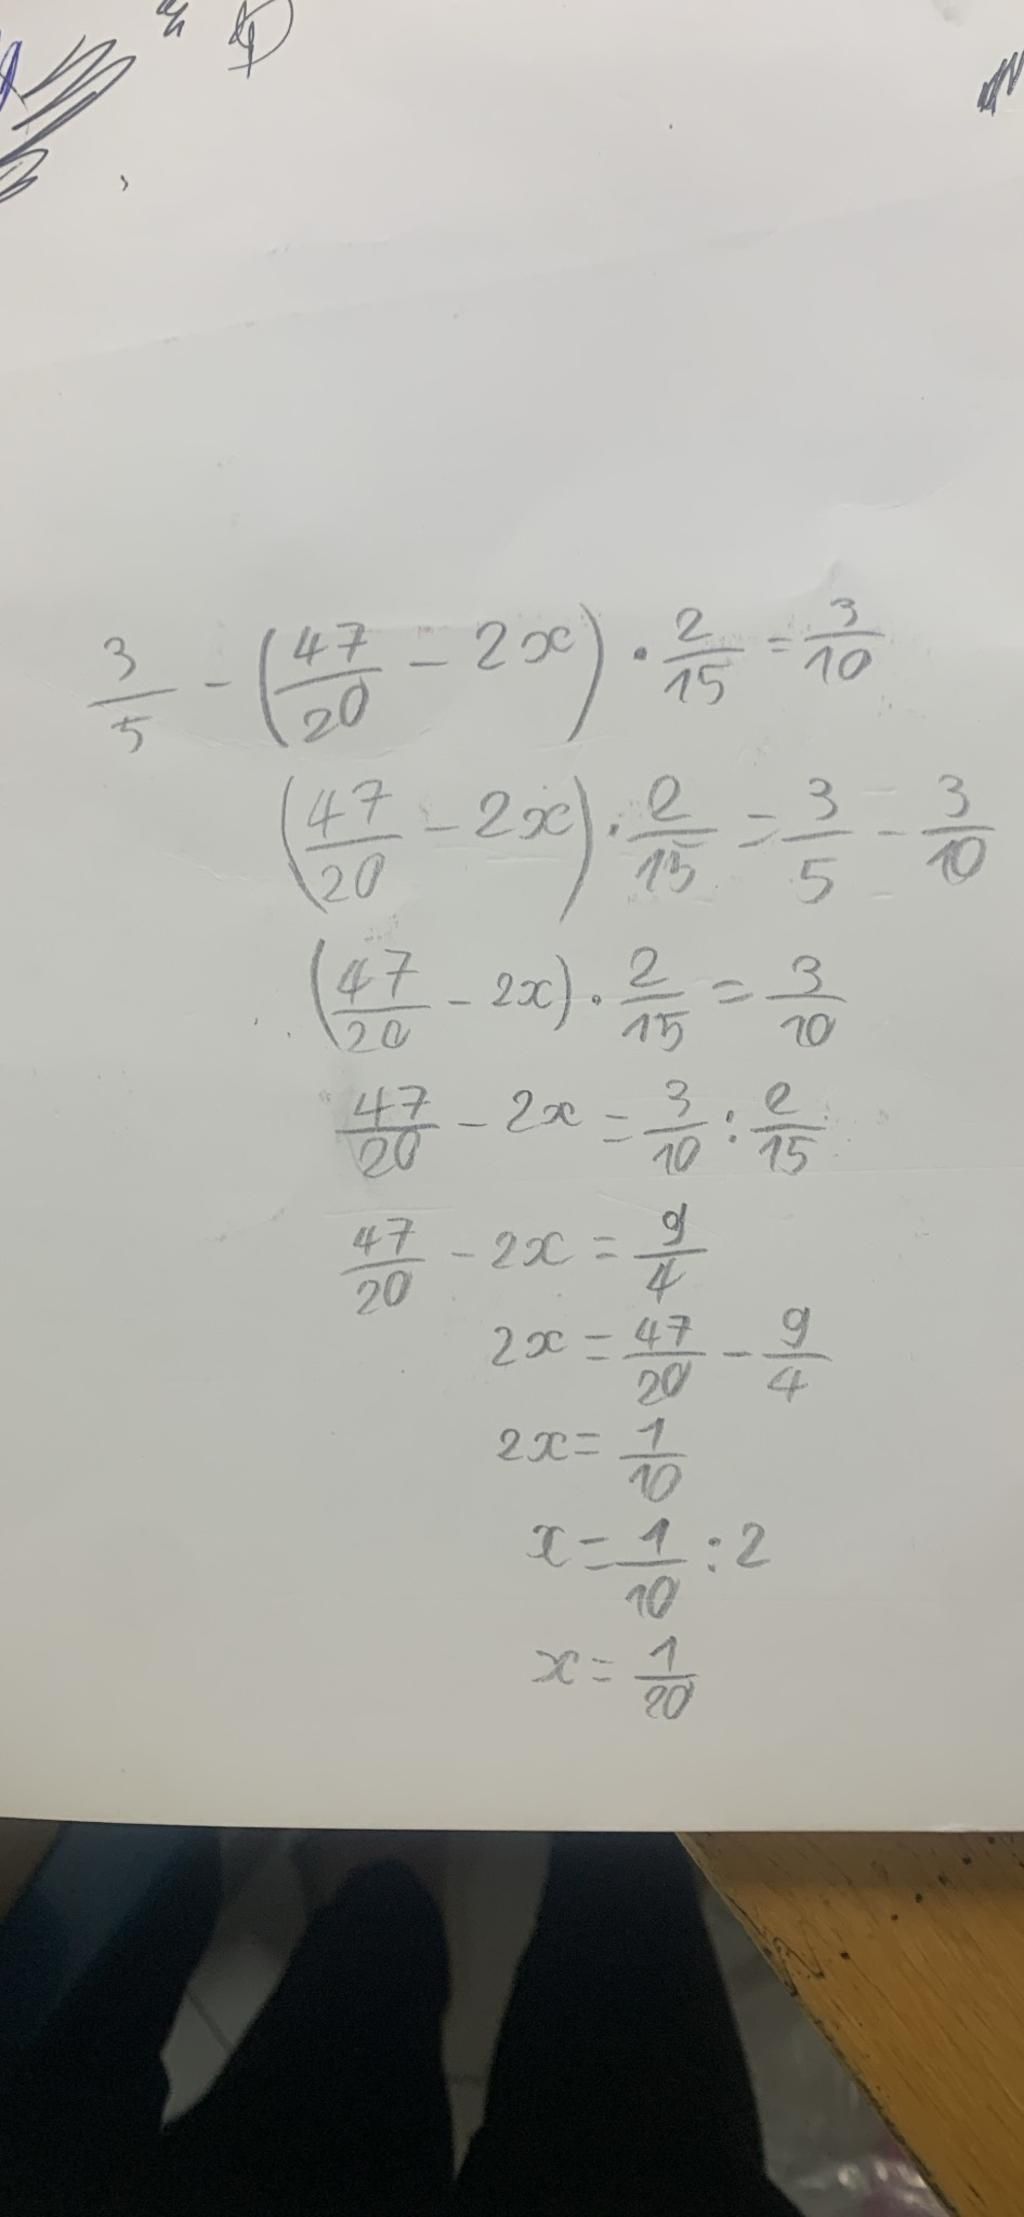 3/5 - (47/20 - 2x) · 2/15 = 3/10
(47/20 - 2x) · 2/15 = 3/5 - 3/10
(47/20 - 2x) · 2/15 = 3/10
47/20 - 2x = 3/10 : 2/15
47/20 - 2x = 9/4
2x = 47/20 - 9/4
2x = 1/10
x = 1/10 : 2
x = 1/20